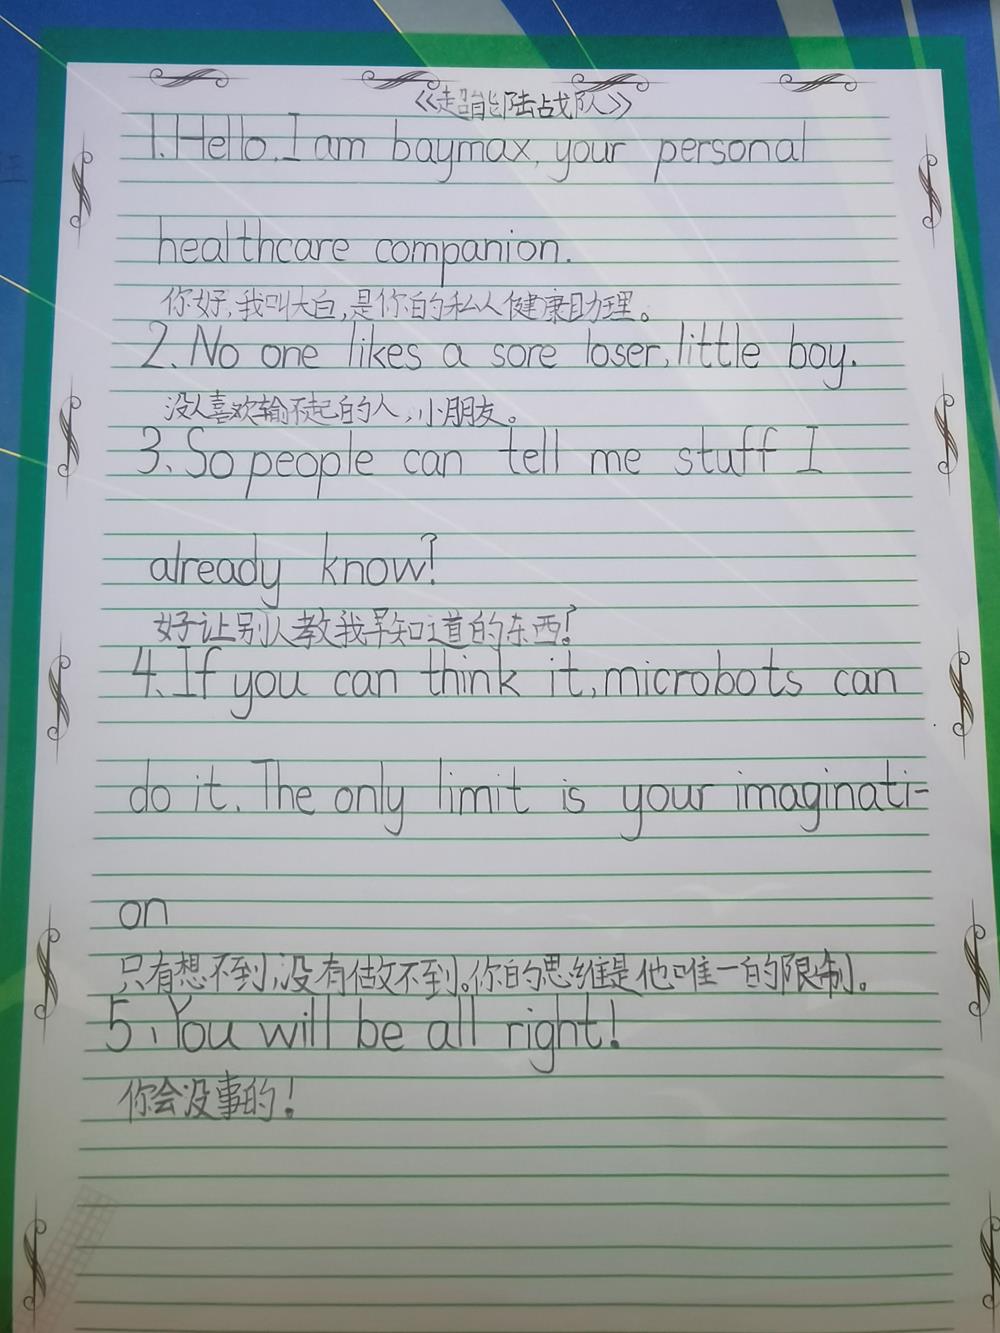 《超能陆战队》
1.Hello.I am baymax, your personal
healthcare companion.
你好,我叫大白,是你的私人健康助理。
2.No one likes a sore loser,little boy.
没人喜欢输不起的人,小朋友。
3、So people can tell me stuff I
already know?
好让别人教我早知道的东西?
4、If you can think it,microbots can
do it.The only limit is your imaginati-
on
只有想不到,没有做不到。你的思维是他唯一的限制。
5、You will be all right!
你会没事的!